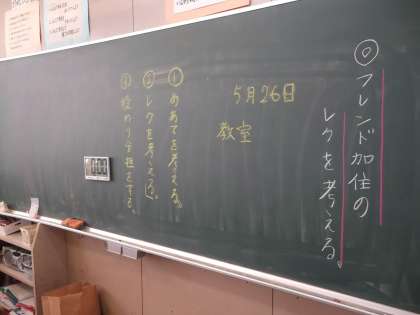 ◎フレンド加住の
レクを考える。
5月26日
教室
①めあてを考える。
②レクを考える。
③役わり分担をする。